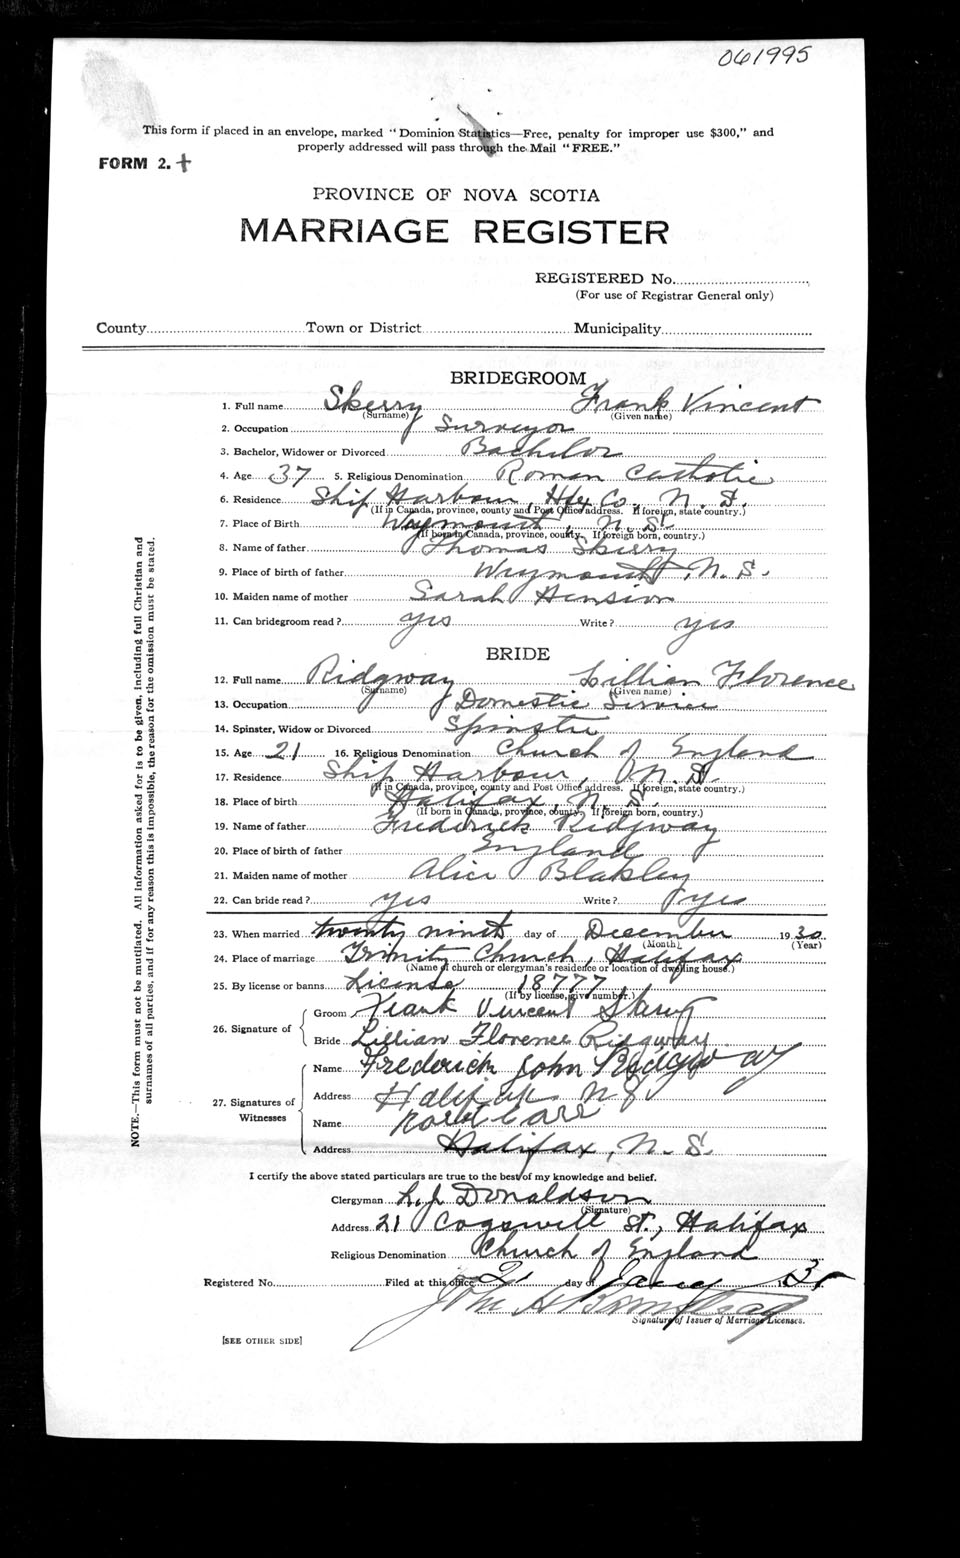 061995
This form if placed in an envelope, marked "Dominion Statistics—Free, penalty for improper use $300," and
properly addressed will pass through the Mail "FREE."
FORM 2.
PROVINCE OF NOVA SCOTIA
MARRIAGE REGISTER
REGISTERED No.
(For use of Registrar General only)
County Town or District Municipality
BRIDEGROOM
1. Full name Skerry Frank Vincent
(Surname) (Given name)
2. Occupation Surveyor
3. Bachelor, Widower or Divorced Bachelor
4. Age 37 5. Religious Denomination Roman Catholic
6. Residence Ship Harbour, Hfx Co. N. S.
(If in Canada, province, county and Post Office address. If foreign, state country.)
7. Place of Birth Weymouth, N. S.
(If born in Canada, province, county. If foreign born, country.)
8. Name of father Thomas Skerry
9. Place of birth of father Weymouth, N. S.
10. Maiden name of mother Sarah
11. Can bridegroom read? yes Write? yes
BRIDE
12. Full name Ridgway Lillian Florence
(Surname) (Given name)
13. Occupation Domestic Service
14. Spinster, Widow or Divorced Spinster
15. Age 21 16. Religious Denomination Church of England
17. Residence Ship Harbour, N. S.
(If in Canada, province, county and Post Office address. If foreign, state country.)
18. Place of birth Halifax, N. S.
(If born in Canada, province, county. If foreign born, country.)
19. Name of father Frederick Ridgway
20. Place of birth of father England
21. Maiden name of mother Alice Blakley
22. Can bride read? yes Write? yes
23. When married twenty ninth day of December 1930
(Month) (Year)
24. Place of marriage Trinity Church, Halifax
(Name of church or clergyman's residence or location of dwelling house.)
25. By license or banns License 18777
(If by license, give number.)
26. Signature of
Groom Frank Vincent Skerry
Bride Lillian Florence Ridgway
27. Signatures of Witnesses
Name Frederick John Ridgway
Address Halifax N S
Name
Address Halifax, N. S.
I certify the above stated particulars are true to the best of my knowledge and belief.
Clergyman L. J. Donaldson
(Signature)
Address 21 Cogswell St., Halifax
Religious Denomination Church of England
Registered No. Filed at this office 2 day of Jany
Signature of Issuer of Marriage Licenses.
[SEE OTHER SIDE]
NOTE.—This form must not be mutilated. All information asked for is to be given, including full Christian and
surnames of all parties, and if for any reason this is impossible, the reason for the omission must be stated.